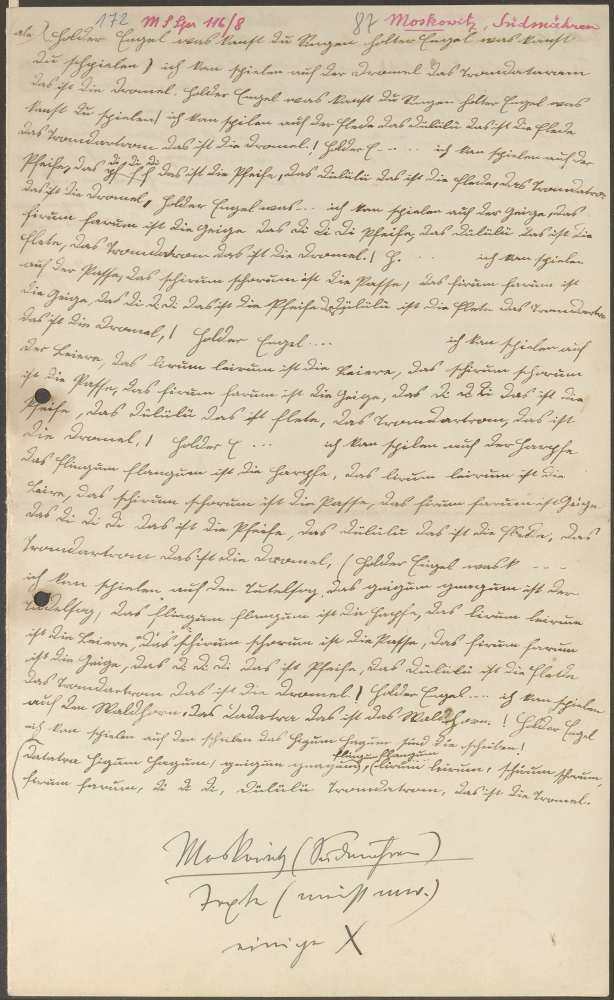 172 MS Spr 116/8 87 Moskowitz, Südmähren
alle (Holder Engel was kanst du Singen holter Engel was kanst
du schpielen) ich kan spielen auf der Dromel das Tromdatarram
das ist die Dromel. Holder Engel was kanst du Singen holter Engel was
kanst du spielen/ ich kan spilen auf der flede das dulülü das ist die flede
das Tromdartrom das ist die Dromel.! Holder E. . . . ich kan spielen auf der
Pfeife, das di, di, di das ist die Pfeife, das dülülü das ist die flede, das Tromdatrom
das ist die Dromel, Holder Engel was... ich kan spielen auf der Geige, das
firum farum ist die Geige das di di di Pfeife, das dülülü das ist die
flete, das Tromdatrom das ist die Dromel.! H. . . . ich kan spielen
auf der Passe, das schirum schorum ist die Passe, das firum farum ist
die Geige, das di di di das ist die Pfeife dülülü ist die flete das Tromdartrom
das ist die Dromel,! Holder Engel .... ich kan spielen auf
der Leiere, das lirum leirum ist die Leiere, das schirum schorum
ist die Passe, das firum farum ist die Geige, das di di di das ist die
Pfeife, das dülülü das ist flete, das Tromdartrom, das ist
die Dromel,! Holder E ... ich kan spilen auf der Harpfe
das flingum flangum ist die Harpfe, das lirum leirum ist die
Leire, das schirum schorum ist die Passe, das firum farum ist Geige
das di di di das ist die Pfeife, das dülülü das ist die flede, das
Tromdartrom das ist die Dromel, (Holder Engel was k - - -
ich kan schielen auf den Tutelsag, das geigum gnagum ist der
Tudelsag, das flingum flangum ist die Harpfe, das lirum leirum
ist die Leiere, das schirum schorum ist die Passe, das firum farum
ist die Geige, das di di di das ist Pfeife, das dülülü ist die flede
das Tromdartrom das ist die Dromel! Holder Engel... ich kan spielen
auf den Waldhorn, das dadatra das ist das Waldhorn.! Holder Engel
ich kan spielen auf den schulen das higum hagum sind die schulen!
flingum flangum
(datatra higum hagum, geigum gnagum, (lirum leirum, schirum schorum,
firum farum, di di di, dülülü Tromdatrom, das ist die Tromel.
Moskowitz (Südmähren)
Texte (meist nur.)
einige X